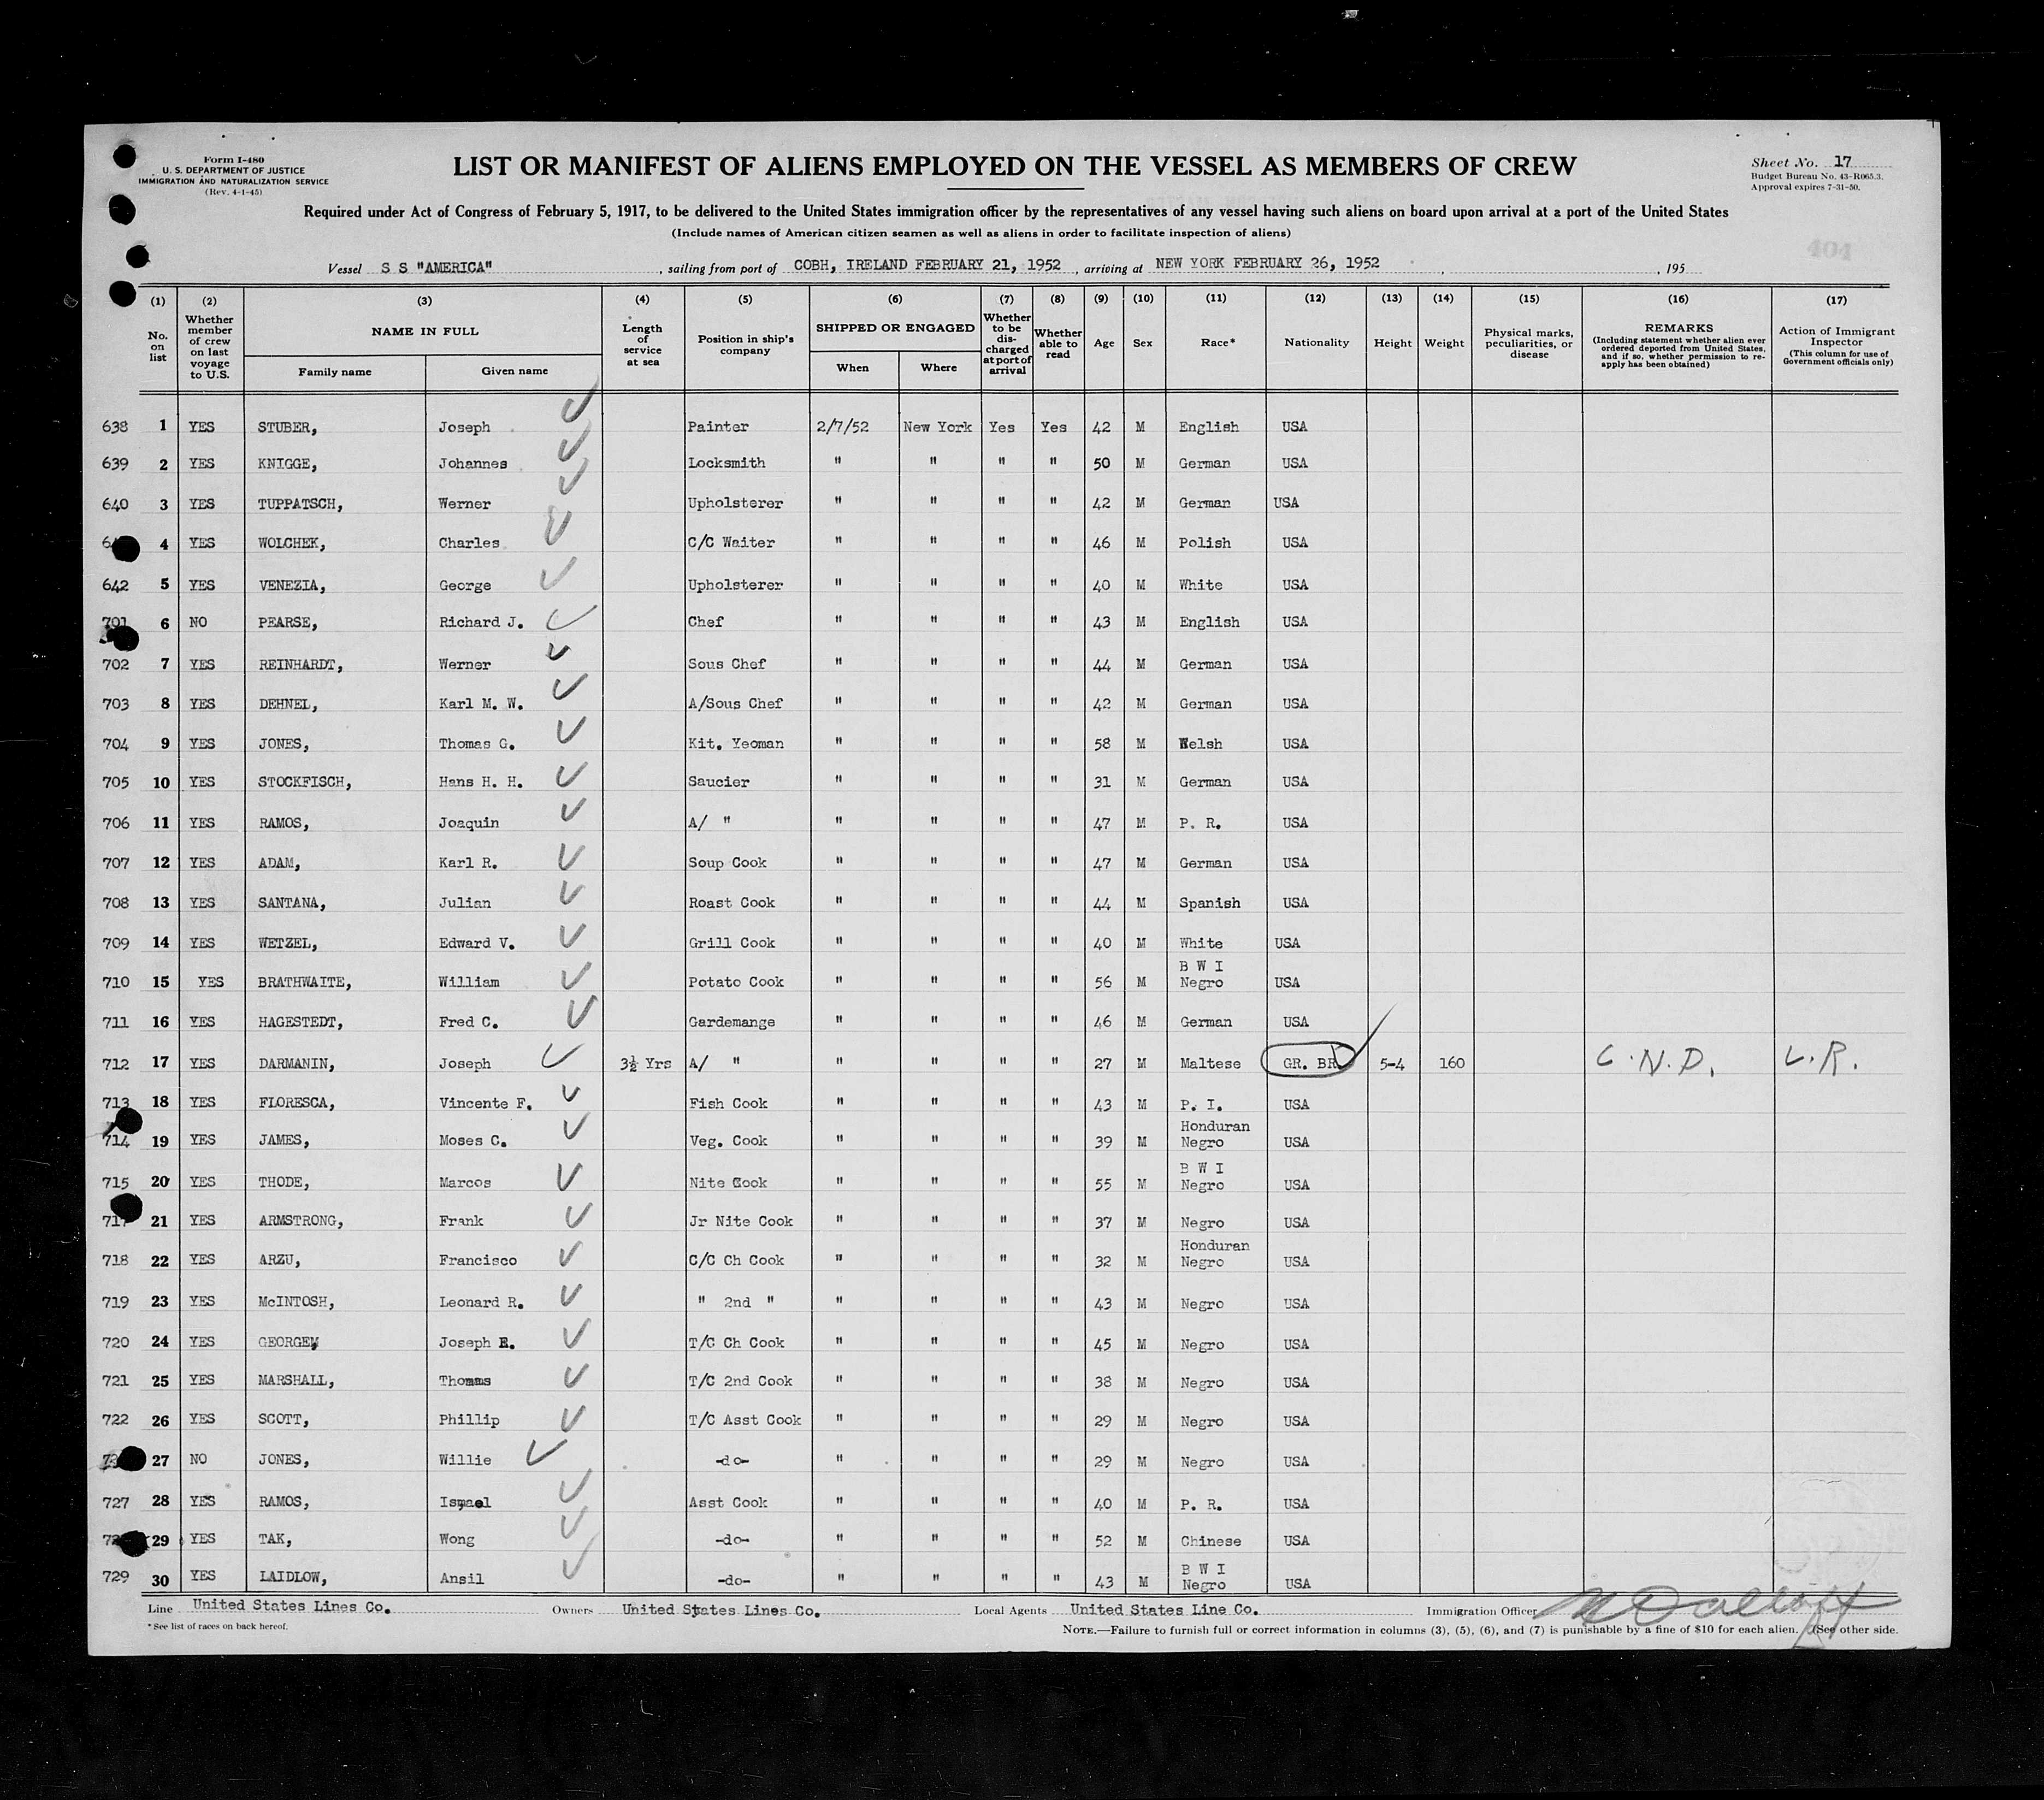 Form I-480
U. S. DEPARTMENT OF JUSTICE
IMMIGRATION AND NATURALIZATION SERVICE
(Rev. 4-1-45)
LIST OR MANIFEST OF ALIENS EMPLOYED ON THE VESSEL AS MEMBERS OF CREW
Sheet No. 17
Budget Bureau No. 43-R065.3.
Approval expires 7-31-50.
Required under Act of Congress of February 5, 1917, to be delivered to the United States immigration officer by the representatives of any vessel having such aliens on board upon arrival at a port of the United States
(Include names of American citizen seamen as well as aliens in order to facilitate inspection of aliens)
404
Vessel S S "AMERICA" , sailing from port of COBH, IRELAND FEBRUARY 21, 1952 , arriving at NEW YORK FEBRUARY 26, 1952 , 195
(1) (2) (3) (4) (5) (6) (7) (8) (9) (10) (11) (12) (13) (14) (15) (16) (17)
No. on list
Whether member of crew on last voyage to U.S.
NAME IN FULL
Family name Given name
Length of service at sea
Position in ship's company
SHIPPED OR ENGAGED
When Where
Whether to be discharged at port of arrival
Whether able to read
Age
Sex
Race*
Nationality
Height
Weight
Physical marks, peculiarities, or disease
REMARKS
(Including statement whether alien ever ordered deported from United States, and if so, whether permission to reapply has been obtained)
Action of Immigrant Inspector
(This column for use of Government officials only)
638 1 YES STUBER, Joseph Painter 2/7/52 New York Yes Yes 42 M English USA
639 2 YES KNIGGE, Johannes Locksmith " " " " 50 M German USA
640 3 YES TUPPATSCH, Werner Upholsterer " " " " 42 M German USA
4 YES WOLCHEK, Charles C/C Waiter " " " " 46 M Polish USA
642 5 YES VENEZIA, George Upholsterer " " " " 40 M White USA
701 6 NO PEARSE, Richard J. Chef " " " " 43 M English USA
702 7 YES REINHARDT, Werner Sous Chef " " " " 44 M German USA
703 8 YES DEHNEL, Karl M. W. A/Sous Chef " " " " 42 M German USA
704 9 YES JONES, Thomas G. Kit. Yeoman " " " " 58 M Welsh USA
705 10 YES STOCKFISCH, Hans H. H. Saucier " " " " 31 M German USA
706 11 YES RAMOS, Joaquin A/ " " " " " 47 M P. R. USA
707 12 YES ADAM, Karl R. Soup Cook " " " " 47 M German USA
708 13 YES SANTANA, Julian Roast Cook " " " " 44 M Spanish USA
709 14 YES WETZEL, Edward V. Grill Cook " " " " 40 M White USA
710 15 YES BRATHWAITE, William Potato Cook " " " " 56 M B W I Negro USA
711 16 YES HAGESTEDT, Fred C. Gardemange " " " " 46 M German USA
712 17 YES DARMANIN, Joseph 3½ Yrs A/ " " " " " 27 M Maltese GR. BR. 5-4 160 C.N.D. L.R.
713 18 YES FLORESCA, Vincente F. Fish Cook " " " " 43 M P. I. USA
714 19 YES JAMES, Moses C. Veg. Cook " " " " 39 M Honduran Negro USA
715 20 YES THODE, Marcos Nite Cook " " " " 55 M B W I Negro USA
717 21 YES ARMSTRONG, Frank Jr Nite Cook " " " " 37 M Negro USA
718 22 YES ARZU, Francisco C/C Ch Cook " " " " 32 M Honduran Negro USA
719 23 YES McINTOSH, Leonard R. " 2nd " " " " " 43 M Negro USA
720 24 YES GEORGE, Joseph E. T/C Ch Cook " " " " 45 M Negro USA
721 25 YES MARSHALL, Thomas T/C 2nd Cook " " " " 38 M Negro USA
722 26 YES SCOTT, Phillip T/C Asst Cook " " " " 29 M Negro USA
27 NO JONES, Willie -do- " " " " 29 M Negro USA
727 28 YES RAMOS, Ismael Asst Cook " " " " 40 M P. R. USA
29 YES TAK, Wong -do- " " " " 52 M Chinese USA
729 30 YES LAIDLOW, Ansil -do- " " " " 43 M B W I Negro USA
Line United States Lines Co. Owners United States Lines Co. Local Agents United States Line Co. Immigration Officer
*See list of races on back hereof.
NOTE.—Failure to furnish full or correct information in columns (3), (5), (6), and (7) is punishable by a fine of $10 for each alien. (See other side.